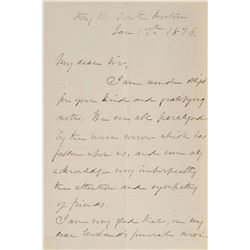 Jan 17th 1876.
My dear Sir,
I am much obliged
for your kind and gratifying
note. We are all paralyzed
by the sorrow which has
fallen upon us, and can only
acknowledge very imperfectly
the attention and sympathy
of friends.
I am very glad that in my
dear husband's funeral